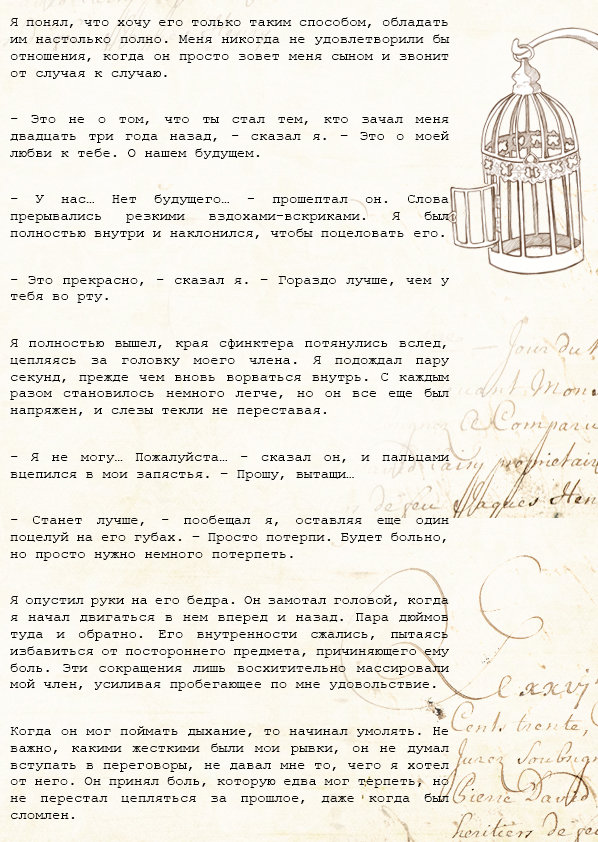 Я понял, что хочу его только таким способом, обладать
им настолько полно. Меня никогда не удовлетворили бы
отношения, когда он просто зовет меня сыном и звонит
от случая к случаю.
– Это не о том, что ты стал тем, кто зачал меня
двадцать три года назад, – сказал я. – Это о моей
любви к тебе. О нашем будущем.
– У нас… Нет будущего… – прошептал он. Слова
прерывались резкими вздохами-вскриками. Я был
полностью внутри и наклонился, чтобы поцеловать его.
– Это прекрасно, – сказал я. – Гораздо лучше, чем у
тебя во рту.
Я полностью вышел, края сфинктера потянулись вслед,
цепляясь за головку моего члена. Я подождал пару
секунд, прежде чем вновь ворваться внутрь. С каждым
разом становилось немного легче, но он все еще был
напряжен, и слезы текли не переставая.
– Я не могу… Пожалуйста… – сказал он, и пальцами
вцепился в мои запястья. – Прошу, вытащи…
– Станет лучше, – пообещал я, оставляя еще один
поцелуй на его губах. – Просто потерпи. Будет больно,
но просто нужно немного потерпеть.
Я опустил руки на его бедра. Он замотал головой, когда
я начал двигаться в нем вперед и назад. Пара дюймов
туда и обратно. Его внутренности сжались, пытаясь
избавиться от постороннего предмета, причиняющего ему
боль. Эти сокращения лишь восхитительно массировали
мой член, усиливая пробегающее по мне удовольствие.
Когда он мог поймать дыхание, то начинал умолять. Не
важно, какими жесткими были мои рывки, он не думал
вступать в переговоры, не давал мне то, чего я хотел
от него. Он принял боль, которую едва мог терпеть, но
не перестал цепляться за прошлое, даже когда был
сломлен.
Jour du
Mon
Comparu
proprietair
de feu Jaques Hen
xxvj
Cents trente,
Pierre David
heritiers de feu